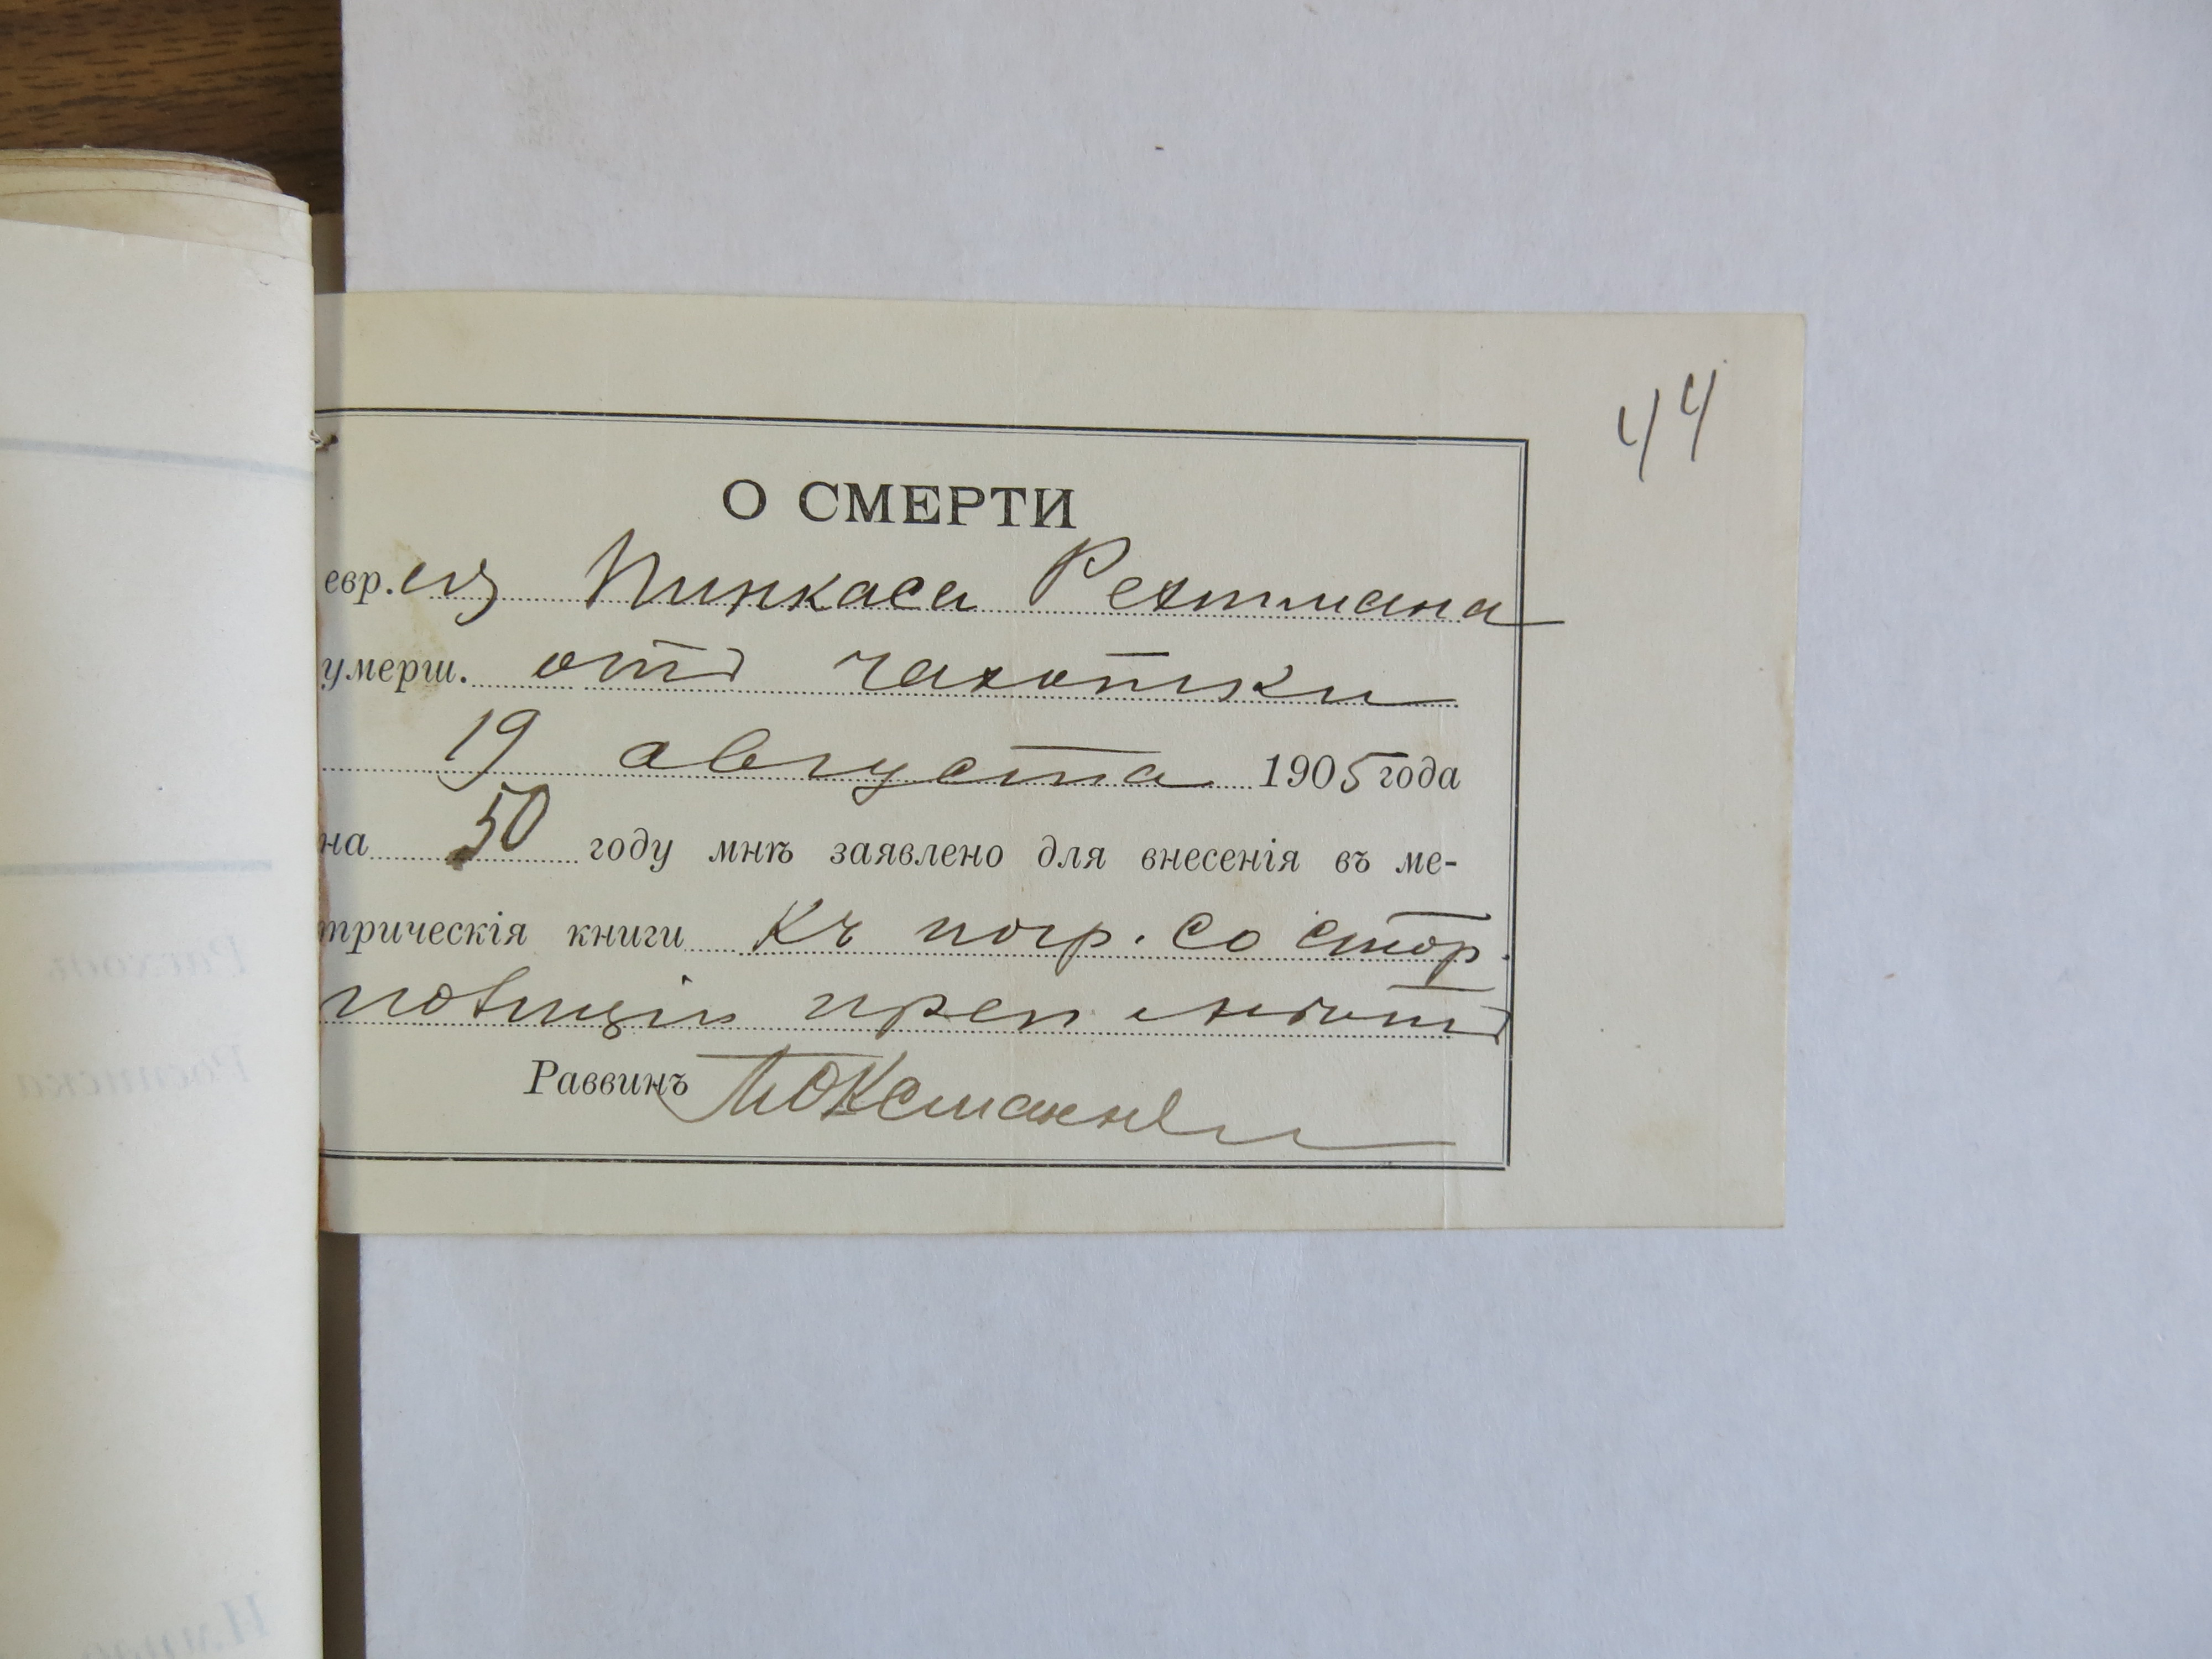 44
О СМЕРТИ
евр. Пинкаса Рехтмана
умерш. отъ чахотки
19 августа 1905 года
на 50 году мнѣ заявлено для внесенія въ ме-
трическія книги Къ погр. со стор.
полиціи преп.
Раввинъ